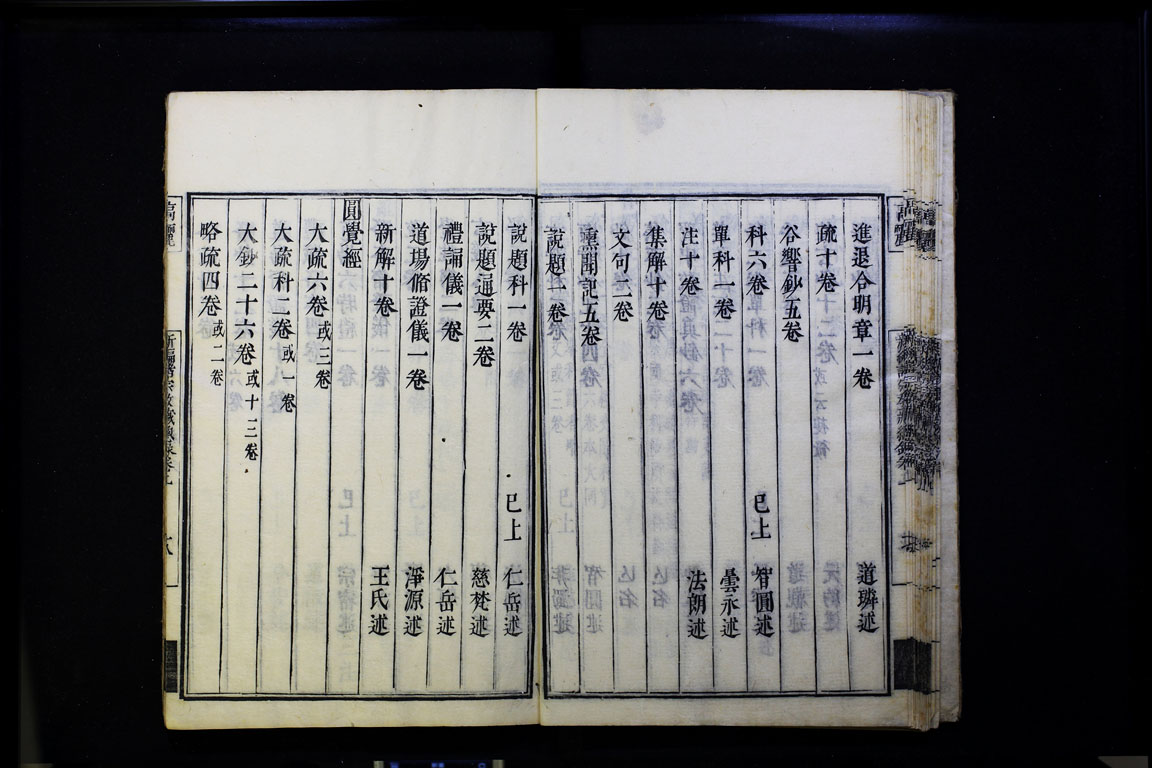 進退合明章一卷 道璘述
疏十卷
谷響鈔五卷
科六卷 已上 智圓述
單科一卷 曇永述
注十卷 法朗述
集解十卷
文句二卷
熏聞記五卷
說題一卷
說題科一卷 已上 仁岳述
說題通要二卷 慈梵述
禮誦儀一卷 仁岳述
道場脩證儀一卷 淨源述
新解十卷 王氏述
圓覺經
大疏六卷或三卷
大疏科二卷或一卷
大鈔二十六卷或十三卷
略疏四卷或二卷
高麗 新編諸宗教藏總錄卷上